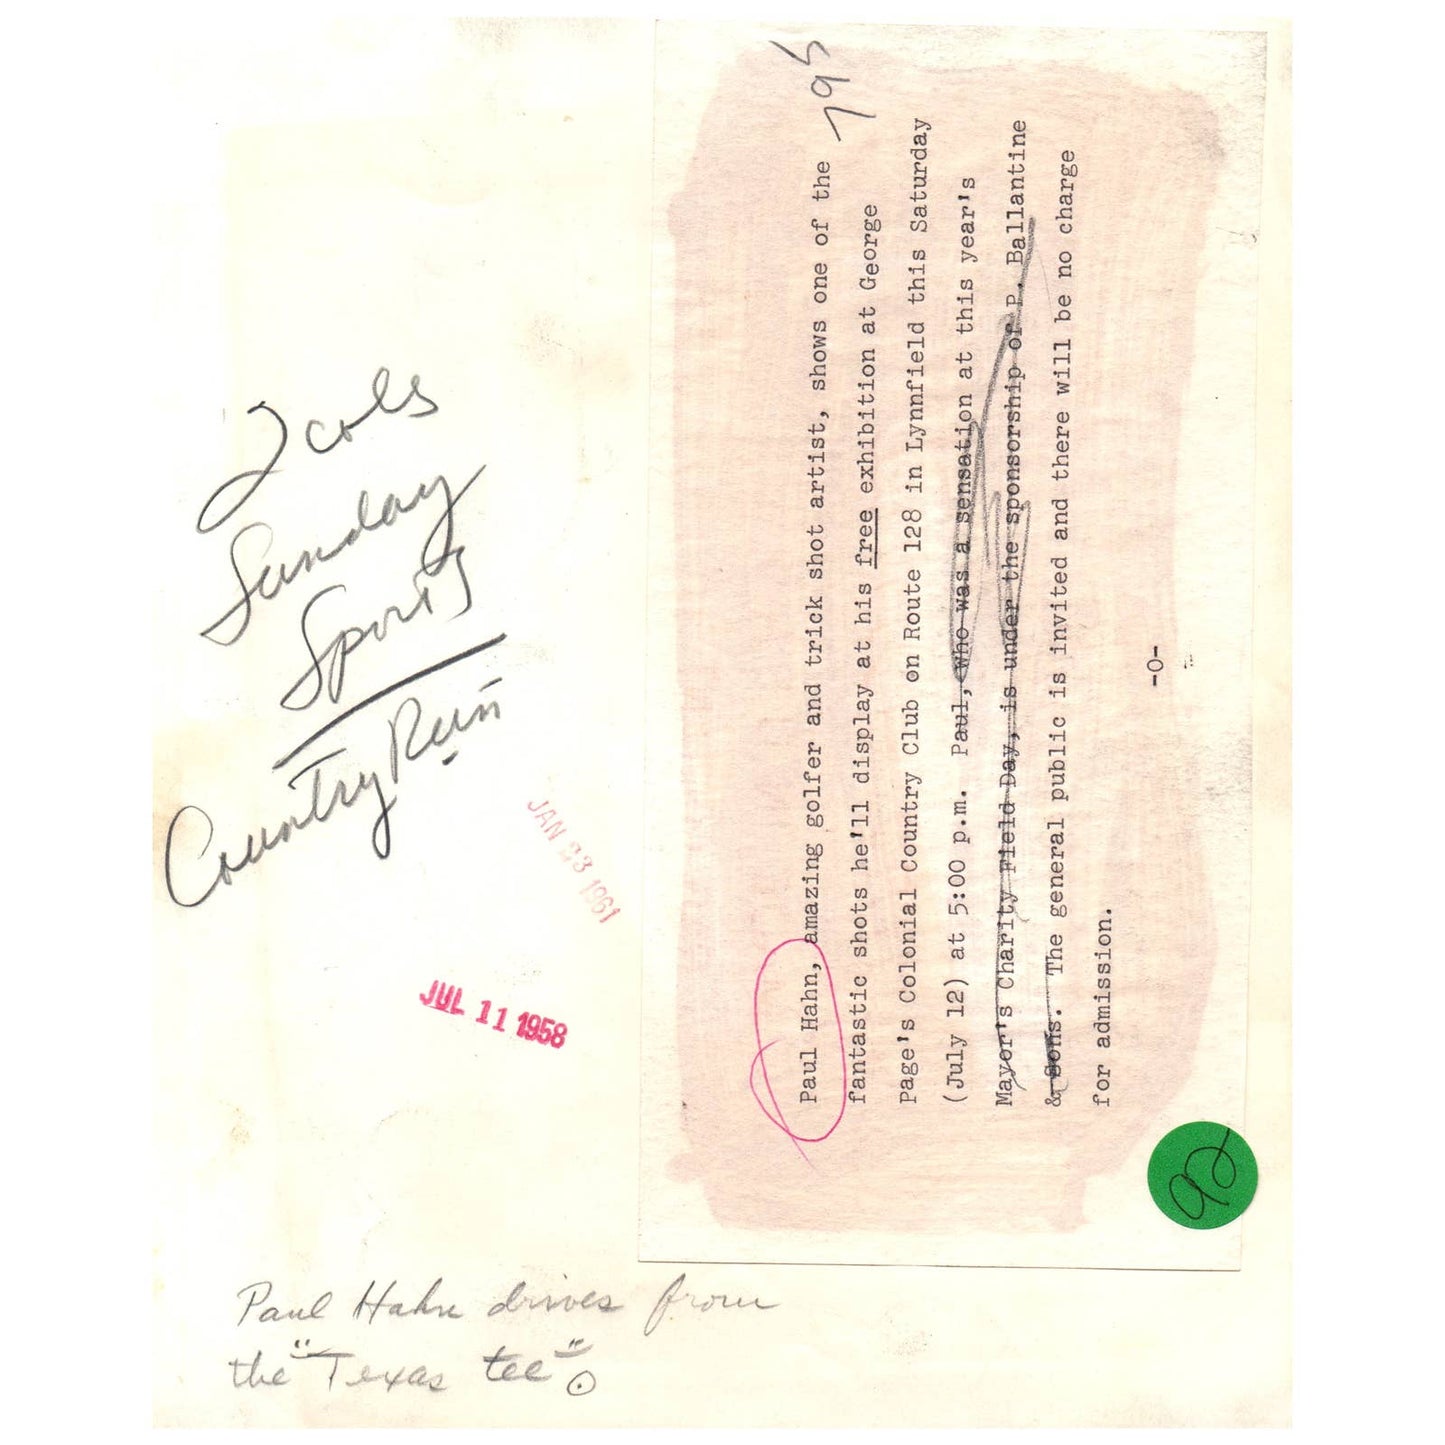 2 cols
Sunday
Sports
Country Run
JAN 23 1961
JUL 11 1958
795
Paul Hahn, amazing golfer and trick shot artist, shows one of the
fantastic shots he'll display at his free exhibition at George
Page's Colonial Country Club on Route 128 in Lynnfield this Saturday
(July 12) at 5:00 p.m. Paul, who was a sensation at this year's
Mayor's Charity Field Day, is under the sponsorship of P. Ballantine
& Sons. The general public is invited and there will be no charge
for admission.
-0-
92
Paul Hahn drives from
the "Texas tee".